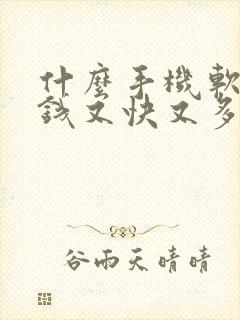 什麼手機軟
錢又快又多
谷雨天晴晴